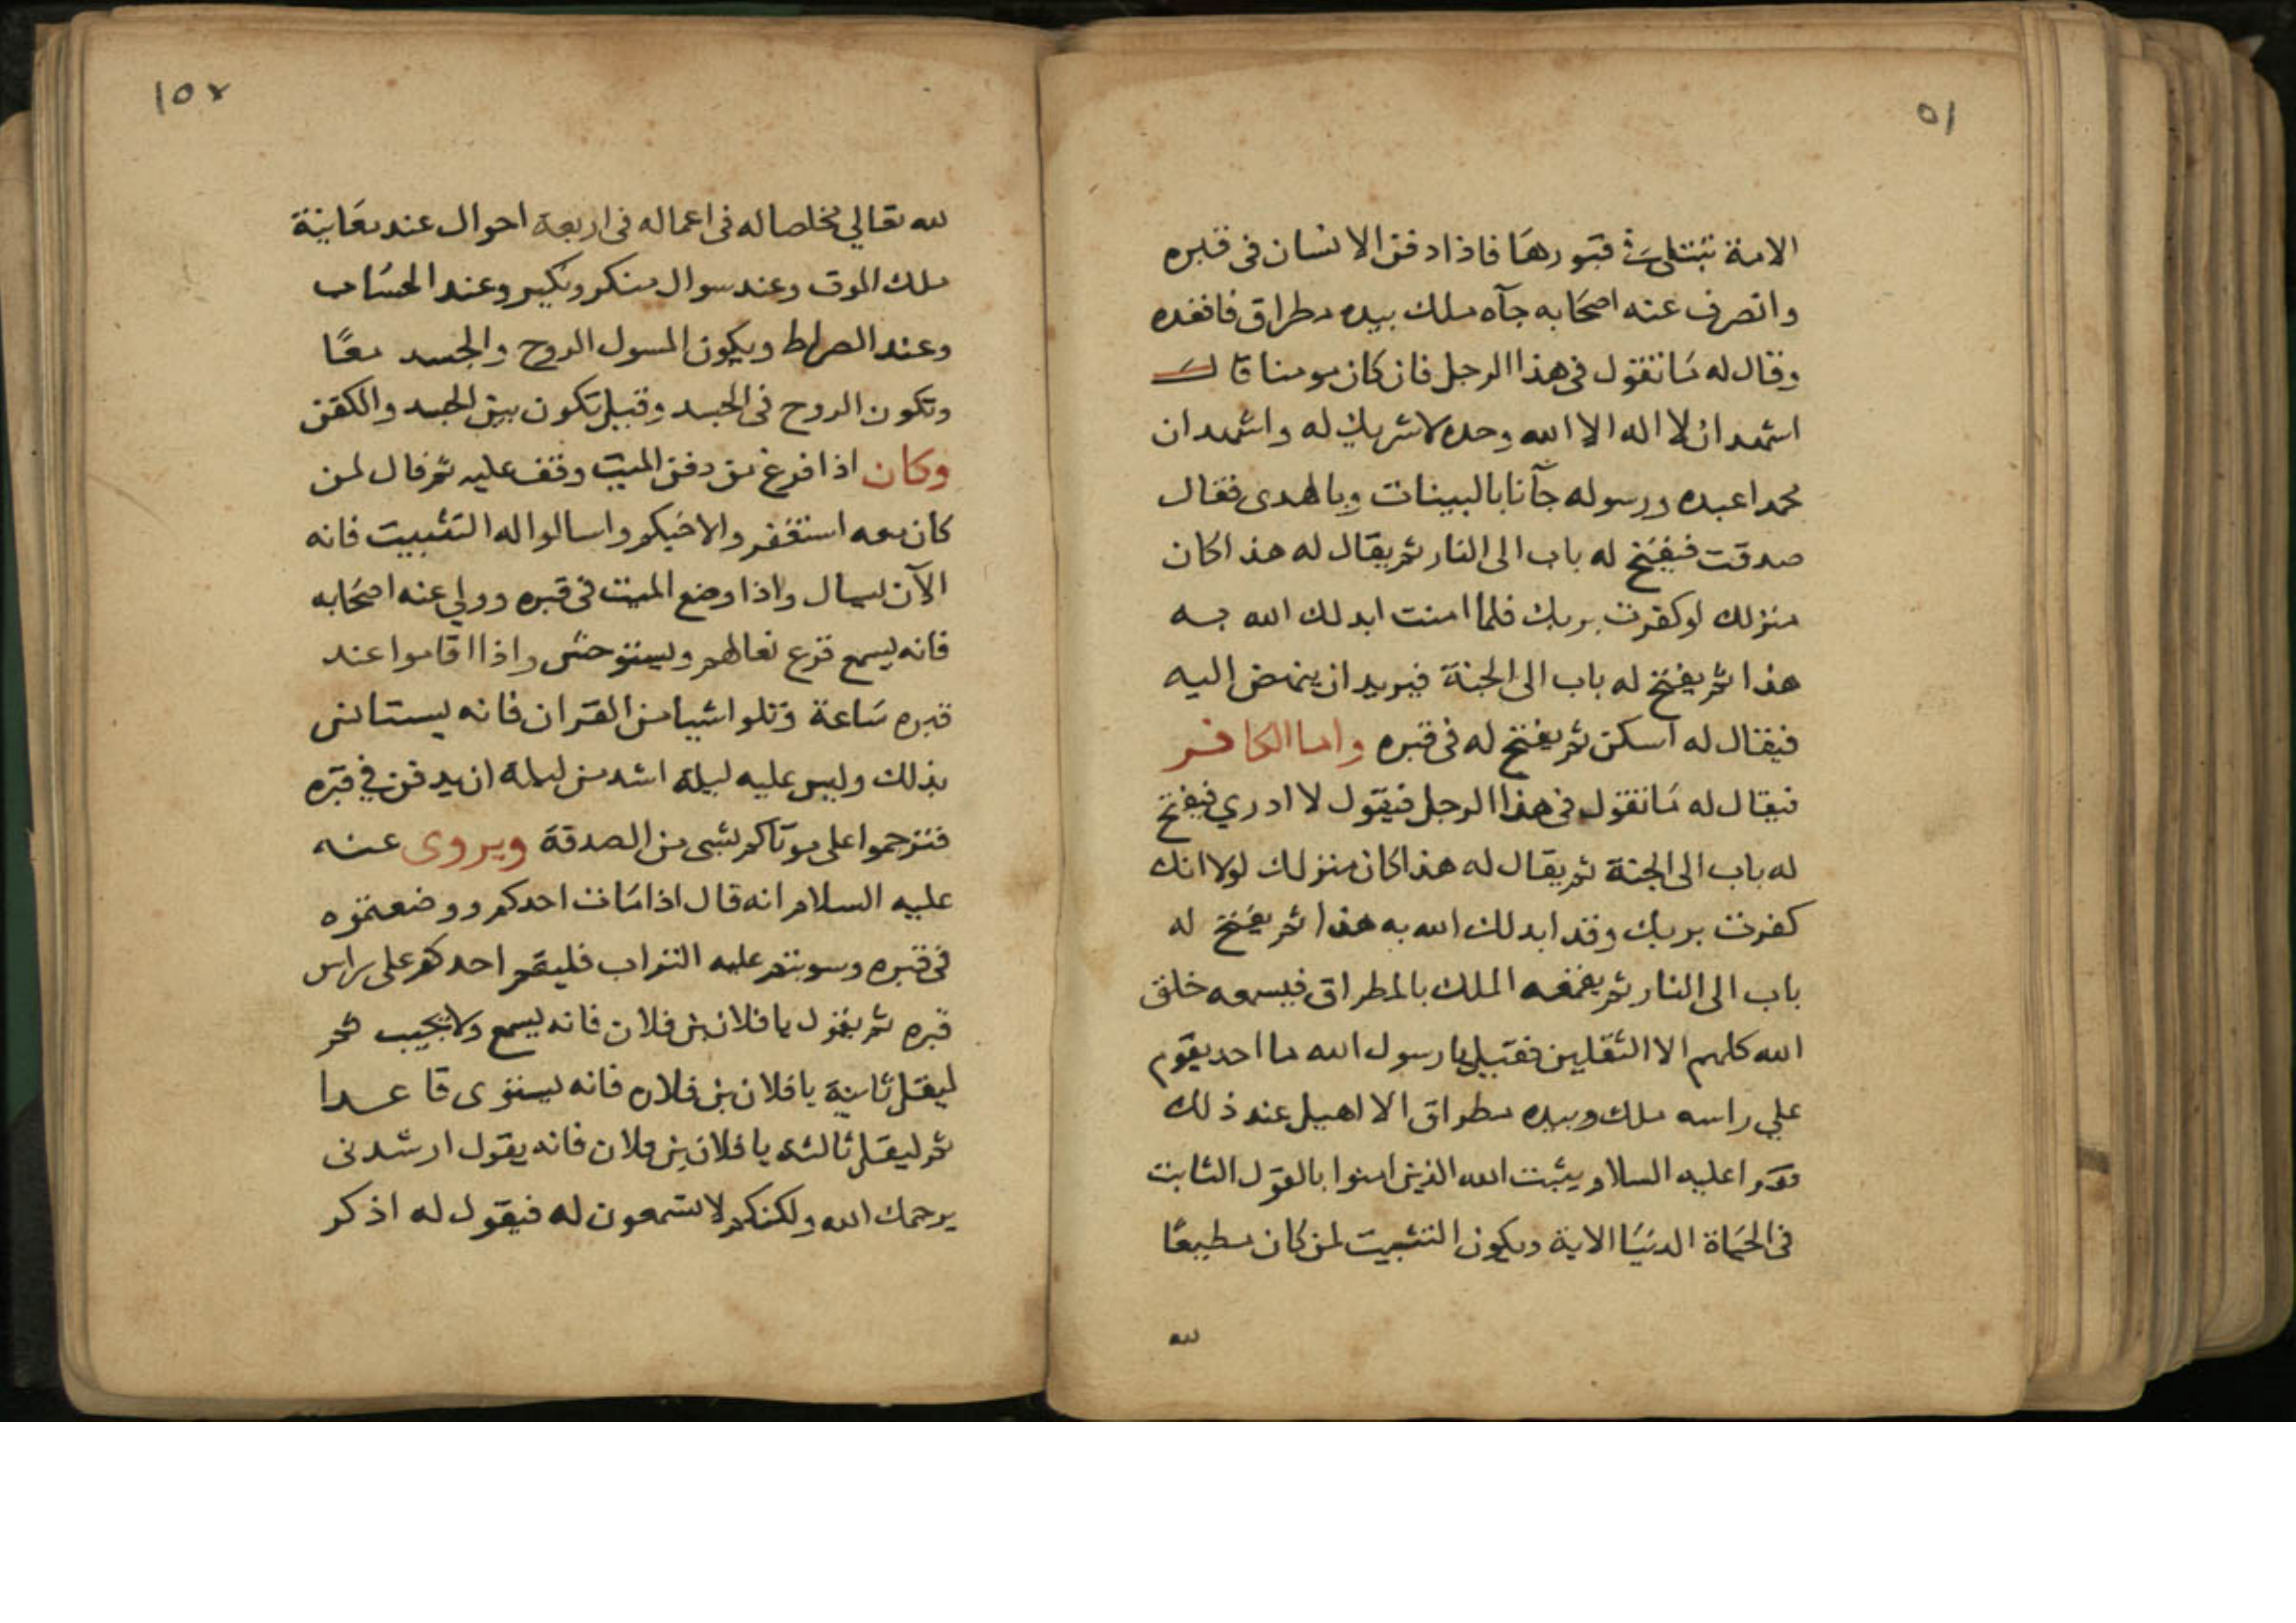 ٥١
الامة تبتلى في قبورها فاذا دفن الانسان في قبره
وانصرف عنه اصحابه جآه ملك بيده مطراق فاقعده
وقال له ما تقول في هذا الرجل فان كان مومنا قال
اشهد ان لا اله الا الله وحده لا شريك له واشهد ان
محمدا عبده ورسوله جآنا بالبينات وبالهدى فقال
صدقت فيفتح له باب الى النار ثم يقال له هذا كان
منزلك لو كفرت بربك فلما امنت ابدلك الله به
هذا ثم يفتح له باب الى الجنة فيريد ان ينهض اليه
فيقال له اسكن ثم يفتح له في قبره واما الكافر
فيقال له ما تقول في هذا الرجل فيقول لا ادري فيفتح
له باب الى الجنة ثم يقال له هذا كان منزلك لولا انك
كفرت بربك وقد ابدلك الله به هذا ثم يفتح له
باب الى النار ثم يقمعه الملك بالمطراق فيسمعه خلق
الله كلهم الا الثقلين فقيل يا رسول الله ما احد يقوم
علي راسه ملك وبيده مطراق الا اهيل عند ذلك
فقرا عليه السلام يثبت الله الذين امنوا بالقول الثابت
في الحياة الدنيا الاية ويكون التثبيت لمن كان مطيعا
لله
١٥٢
لله تعالي مخلصا له في اعماله في اربعة احوال عند معاينة
ملك الموت وعند سوال منكر ونكير وعند الحساب
وعند الصراط ويكون المسول الروح والجسد معًا
وتكون الروح في الجسد وقيل تكون بين الجسد والكفن
وكان اذا فرغ من دفن الميت وقف عليه ثم قال لمن
كان معه استغفروا لاخيكم واسالوا له التثبيت فانه
الآن يسال واذا وضع الميت في قبره وولي عنه اصحابه
فانه يسمع قرع نعالهم ويستوحش واذا اقاموا عند
قبره ساعة وتلوا شيا من القران فانه يستانس
بذلك وليس عليه ليلة اشد من ليلة ان يدفن في قبره
فترحموا على موتاكم بشي من الصدقة ويروى عنه
عليه السلام انه قال اذا مات احدكم ووضعتموه
في قبره وسويتم عليه التراب فليقم احدكم على راس
قبره ثم يقول يا فلان بن فلان فانه يسمع ولا يجيب ثم
ليقل ثانية يا فلان بن فلان فانه يستوى قاعدا
ثم ليقل ثالثة يا فلان بن فلان فانه يقول ارشدنى
يرحمك الله ولكنكم لا تسمعون له فيقول له اذكر